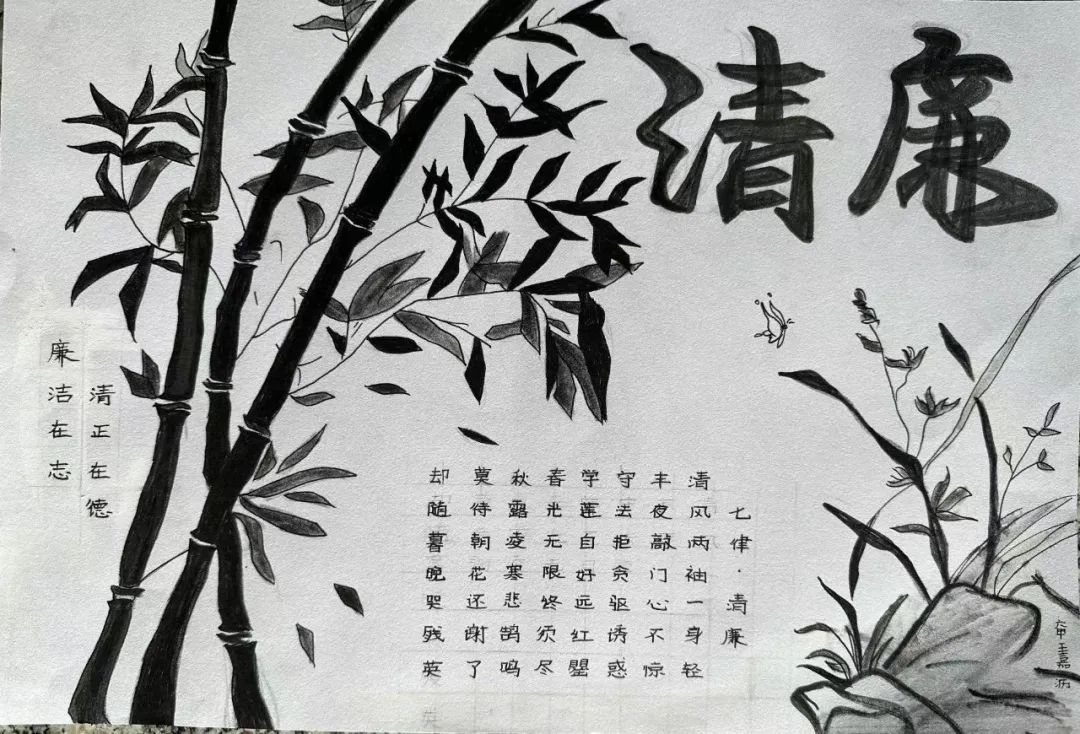 清廉
七律·清廉
清风两袖一身轻
丰夜敲门心不惊
守法拒贪驱诱惑
学莲自好远红罂
春光无限终须尽
秋露凌寒悲鹄鸣
莫待朝花还谢了
却随暮晚哭残英
清正在德
廉洁在志
王嘉